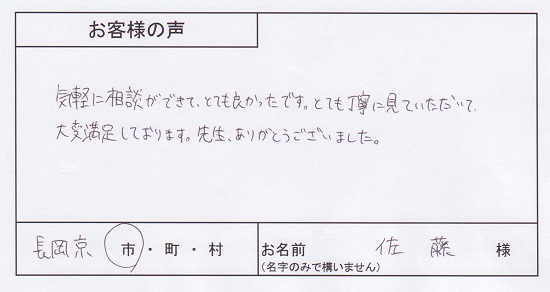 お客様の声
気軽に相談ができて、とても良かったです。とても丁寧に見ていただいて、
大変満足しております。先生、ありがとうございました。
長岡京 市・町・村 お名前 佐藤 様
(名字のみで構いません)